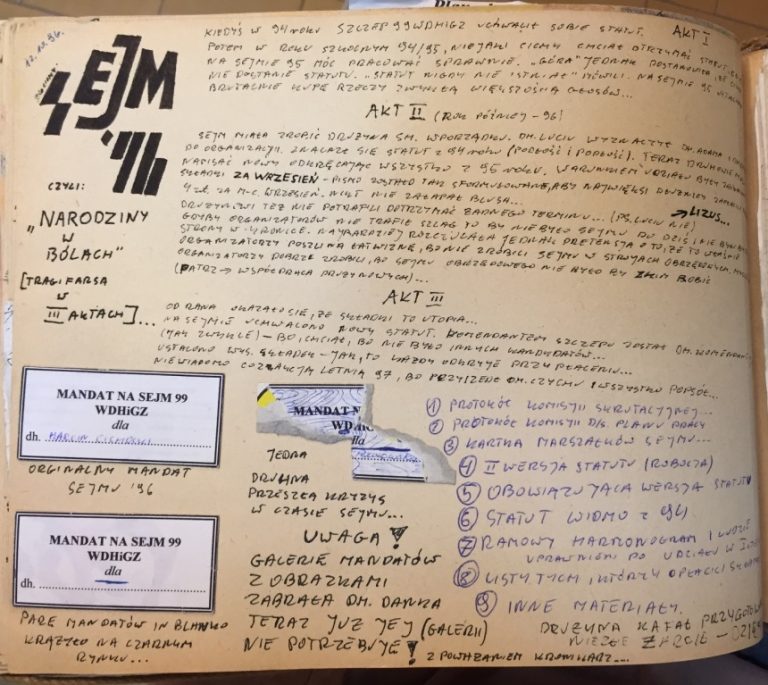 12.10.96.
SEJM
'96
CZYLI:
„NARODZINY
W
BÓLACH"
[TRAGIFARSA
W
III AKTACH]...
AKT I
KIEDYŚ W 94 ROKU SZCZEP 99 WDHIGZ UCHWALIŁ SOBIE STATUT.
POTEM W ROKU SZKOLNYM 94/95, NIEJAKI CICHY CHCIAŁ OTRZYMAĆ STATUT
NA SEJMIE 95 MÓC PRACOWAĆ SPRAWNIE. „GÓRA" JEDNAK POSTANOWIŁA, ŻE
NIE DOSTANIE STATUTU. „STATUT NIGDY NIE ISTNIAŁ" MÓWILI. NA SEJMIE 95
BRUTALNIE KUPĘ RZECZY ZWYKŁĄ WIĘKSZOŚCIĄ GŁOSÓW...
AKT II (ROK PÓŹNIEJ - 96)
SEJM MIAŁA ZROBIĆ DRUŻYNA SM. WPORZĄDKU. DH. LUCIU WYZNACZYŁ DH. ADAMA
DO ORGANIZACJI. ZNALAZŁ SIĘ STATUT Z 94 ROKU (PODŁOŚĆ I PODŁOŚĆ). TERAZ
NAPISAĆ NOWY ODKRĘCAJĄC WSZYSTKO Z 95 ROKU. WARUNKIEM UDZIAŁU BYŁY
SKŁADKI ZA WRZESIEŃ - PISMO ZOSTAŁO TAK SFORMUŁOWANE, ABY NAJWIĘKSI DŁUŻNICY
4 ZŁ. ZA M-C. WRZESIEŃ. NIKT NIE ZAŁAPAŁ BLUSA...
DRUŻYNOWI TEŻ NIE POTRAFILI DOTRZYMAĆ ŻADNEGO TERMINU... (PS. LUCIU NIE) → LIZUS...
GDYBY ORGANIZATORÓW NIE TRAFIŁ SZLAG TO BY NIE BYŁO SEJMU DO DZIŚ I NIE BYŁOBY
STRONY W KRONICE. NAJBARDZIEJ ROZCZULAŁA JEDNAK PRETENSJA O TO, ŻE TO WŁAŚNIE
ORGANIZATORZY POSZLI NA ŁATWIZNĘ, BO NIE ZROBILI SEJMU W STROJACH OBRZĘDOWYCH.
ORGANIZATORZY DOBRZE ZROBILI, BO SEJMU OBRZĘDOWEGO NIE BYŁO BY Z KIM ROBIĆ
(PATRZ → WSPÓŁPRACA DRUŻYNOWYCH)...
AKT III
OD RANA OKAZAŁO SIĘ, ŻE SKŁADKI TO UTOPIA...
NA SEJMIE UCHWALONO NOWY STATUT. KOMENDANTEM SZCZEPU ZOSTAŁ DH. KOMENDANT
(JAK ZWYKLE) - BO, CHCIAŁ, BO NIE BYŁO INNYCH KANDYDATÓW...
USTALONO WYS. SKŁADEK - JAK, TO KAŻDY ODKRYJE PRZY PŁACENIU...
NIEWIADOMO CO Z AKCJĄ LETNIĄ 97, BO PRZYSZEDŁ DH. ZYCHU I WSZYSTKO POPSÓŁ...
MANDAT NA SEJM 99
WDHiGZ
dla
dh. MARCIN
ORGINALNY MANDAT
SEJMU '96
MANDAT NA SEJM 99
WDHiGZ
dla
dh.
PARĘ MANDATÓW IN BLANKO
KRĄŻYŁO NA CZARNYM
RYNKU...
MANDAT N
dla
JEDNA
DRUŻYNA
PRZESZŁA KRYZYS
W CZASIE SEJMU...
UWAGA!
GALERIĘ MANDATÓW
Z OBRAZKAMI
ZABRAŁA DH. DANKA
TERAZ JUŻ JEJ (GALERII)
NIE POTRZEBUJE!
Z POWAŻANIEM KRONIKARZ...
1 PROTOKÓŁ KOMISJI SKRUTACYJNEJ...
2 PROTOKÓŁ KOMISJI D/S. PLANU PRACY
3 KARTKA MARSZAŁKÓW SEJMU...
4 II WERSJA STATUTU (ROBOCZA)
5 OBOWIĄZUJĄCA WERSJA STATUTU
6 STATUT WIDMO Z 94
7 RAMOWY HARMONOGRAM I LUDZIE
UPRAWNIENI DO UDZIAŁU W
8 LISTY TYCH, KTÓRZY OPŁACILI
9 INNE MATERIAŁY.
DRUŻYNA KAFAŁ
ŻARCIE